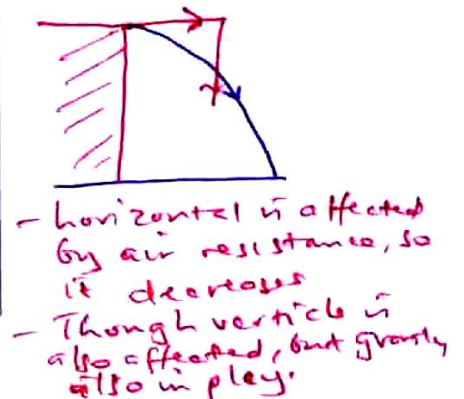 - horizontal is affected
by air resistance, so
it decreases
- Though verticle is
also affected, but gravity
also in play.